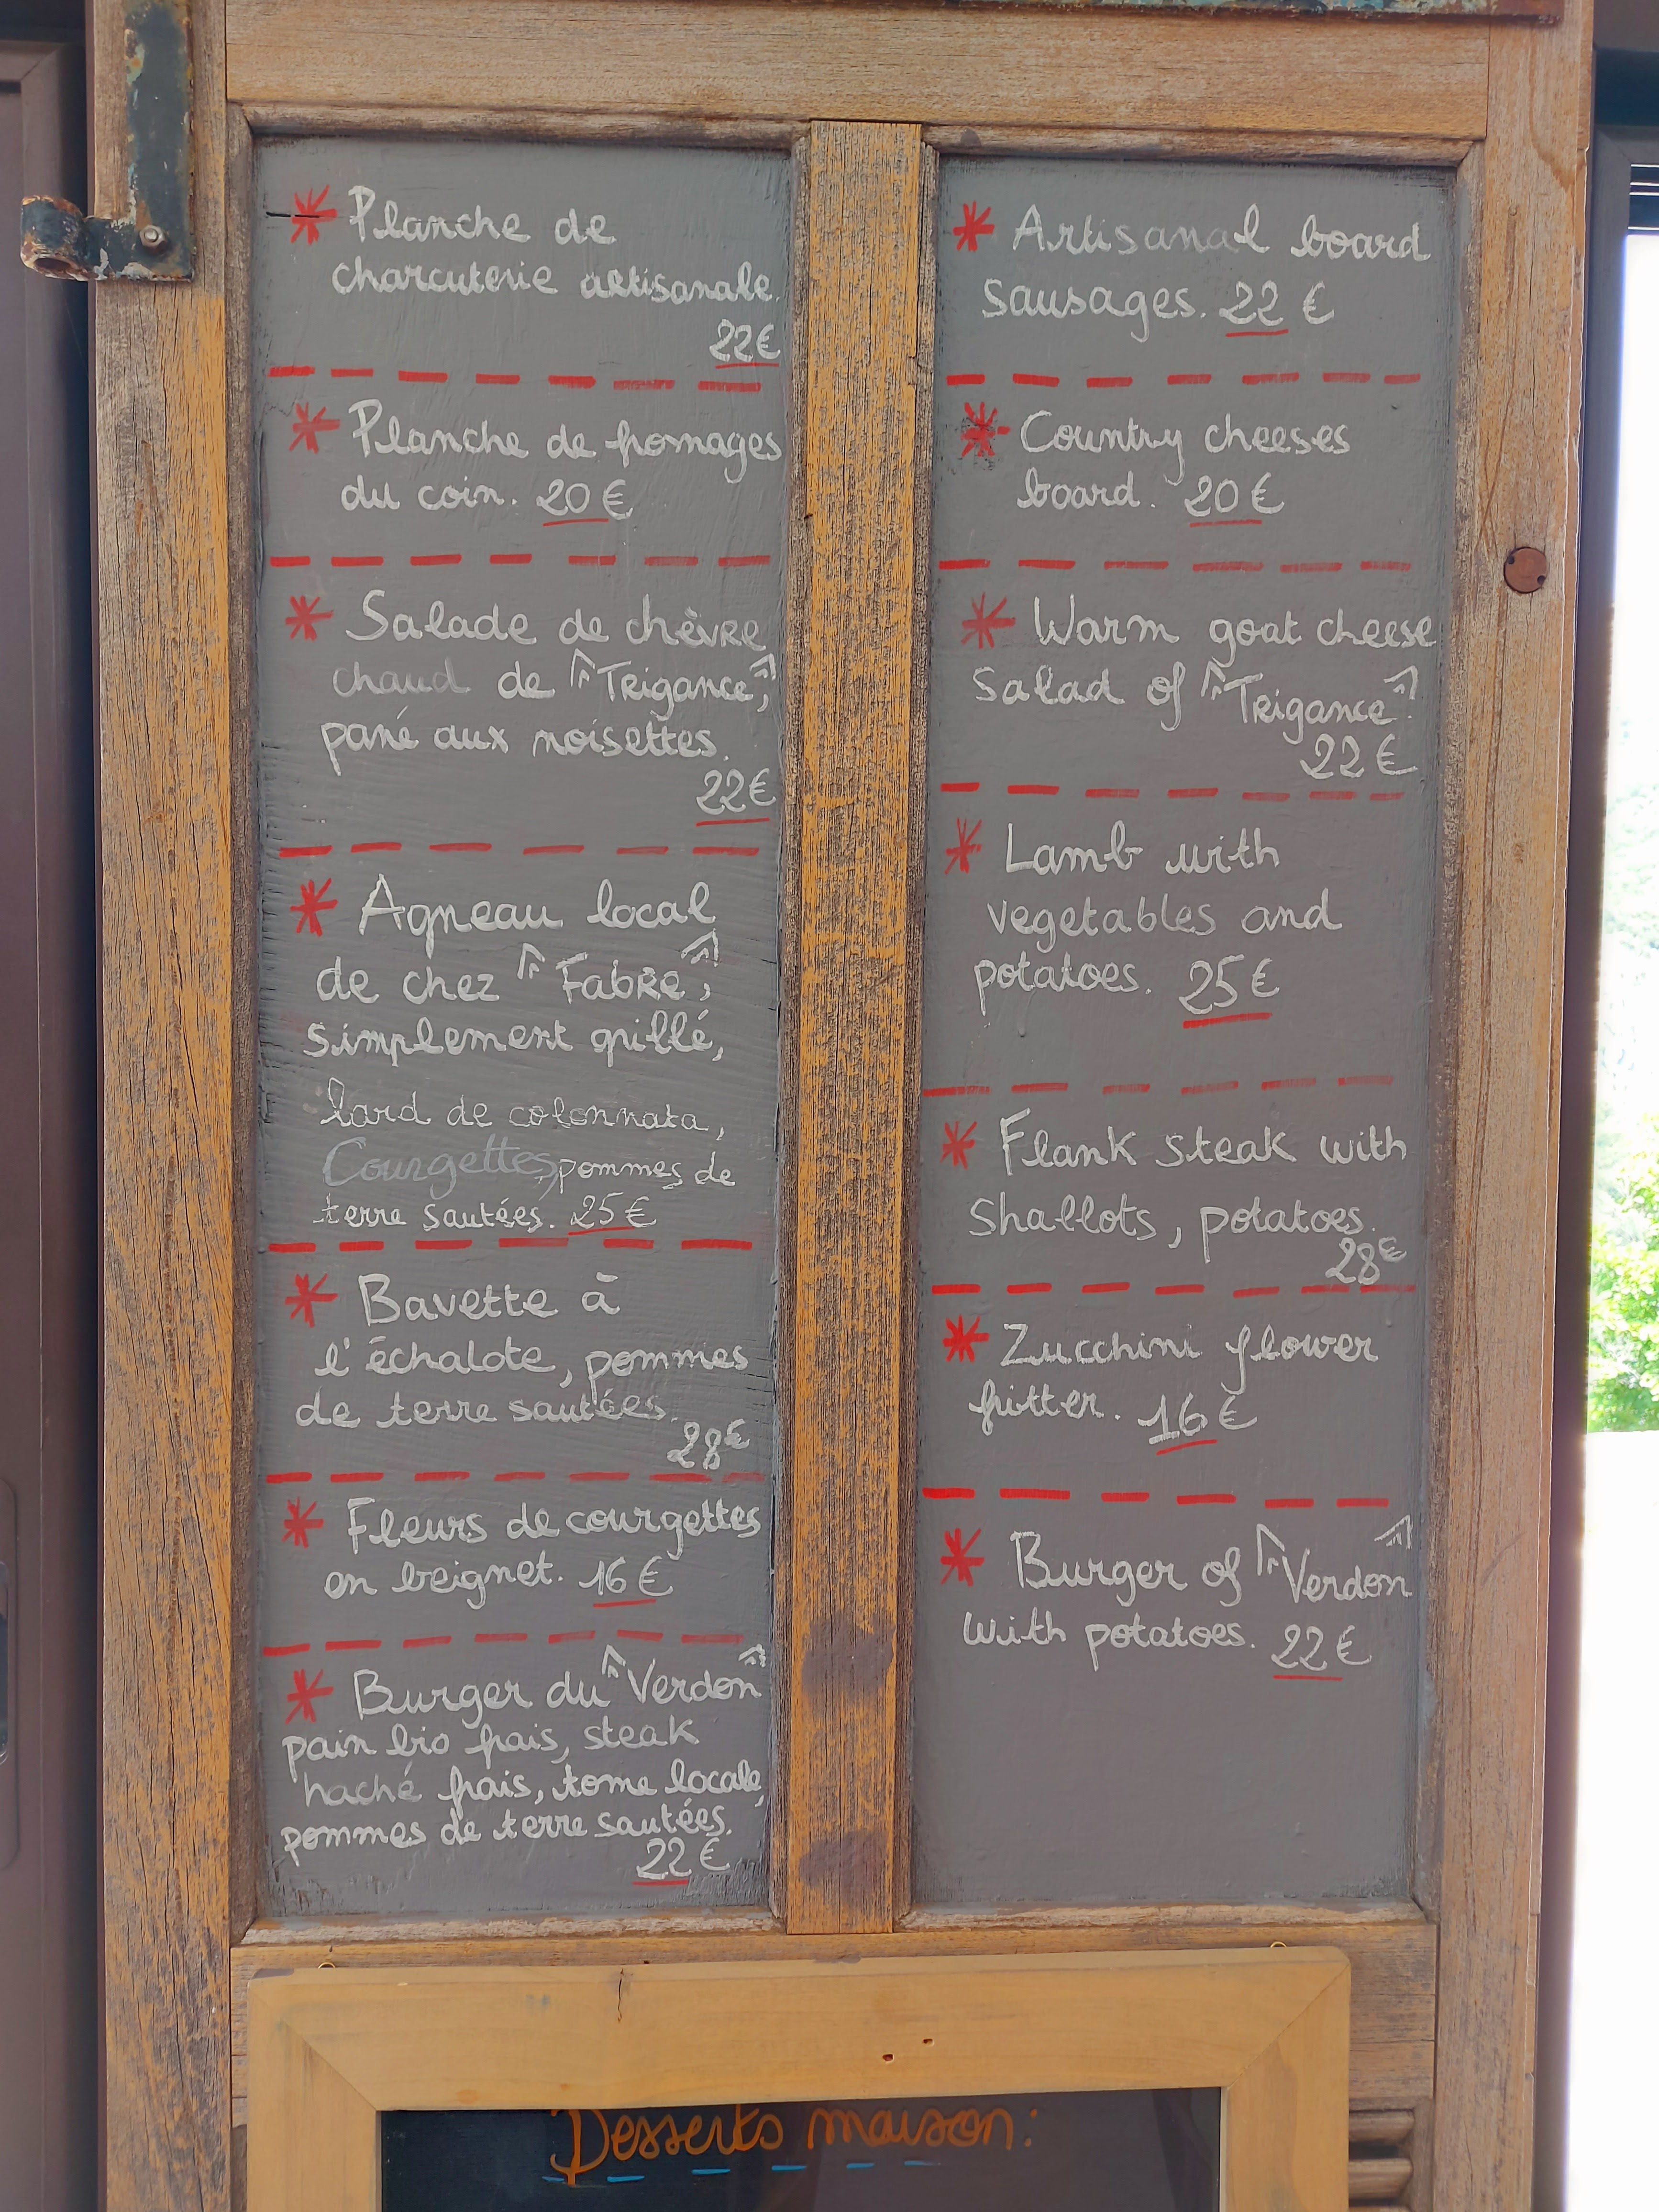 * Planche de
charcuterie artisanale.
22€
* Planche de fromages
du coin. 20€
* Salade de chèvre
chaud de "Trigance",
pané aux noisettes.
22€
* Agneau local
de chez "Fabre",
simplement grillé,
lard de colonnata,
Courgettes, pommes de
terre sautées. 25€
* Bavette à
l'échalote, pommes
de terre sautées.
28€
* Fleurs de courgettes
en beignet. 16€
* Burger du "Verdon"
pain bio frais, steak
haché frais, tome locale,
pommes de terre sautées.
22€
* Artisanal board
sausages. 22€
* Country cheeses
board. 20€
* Warm goat cheese
Salad of "Trigance".
22€
* Lamb with
vegetables and
potatoes. 25€
* Flank steak with
shallots, potatoes.
28€
* Zucchini flower
fritter. 16€
* Burger of "Verdon"
with potatoes. 22€
Desserts maison: